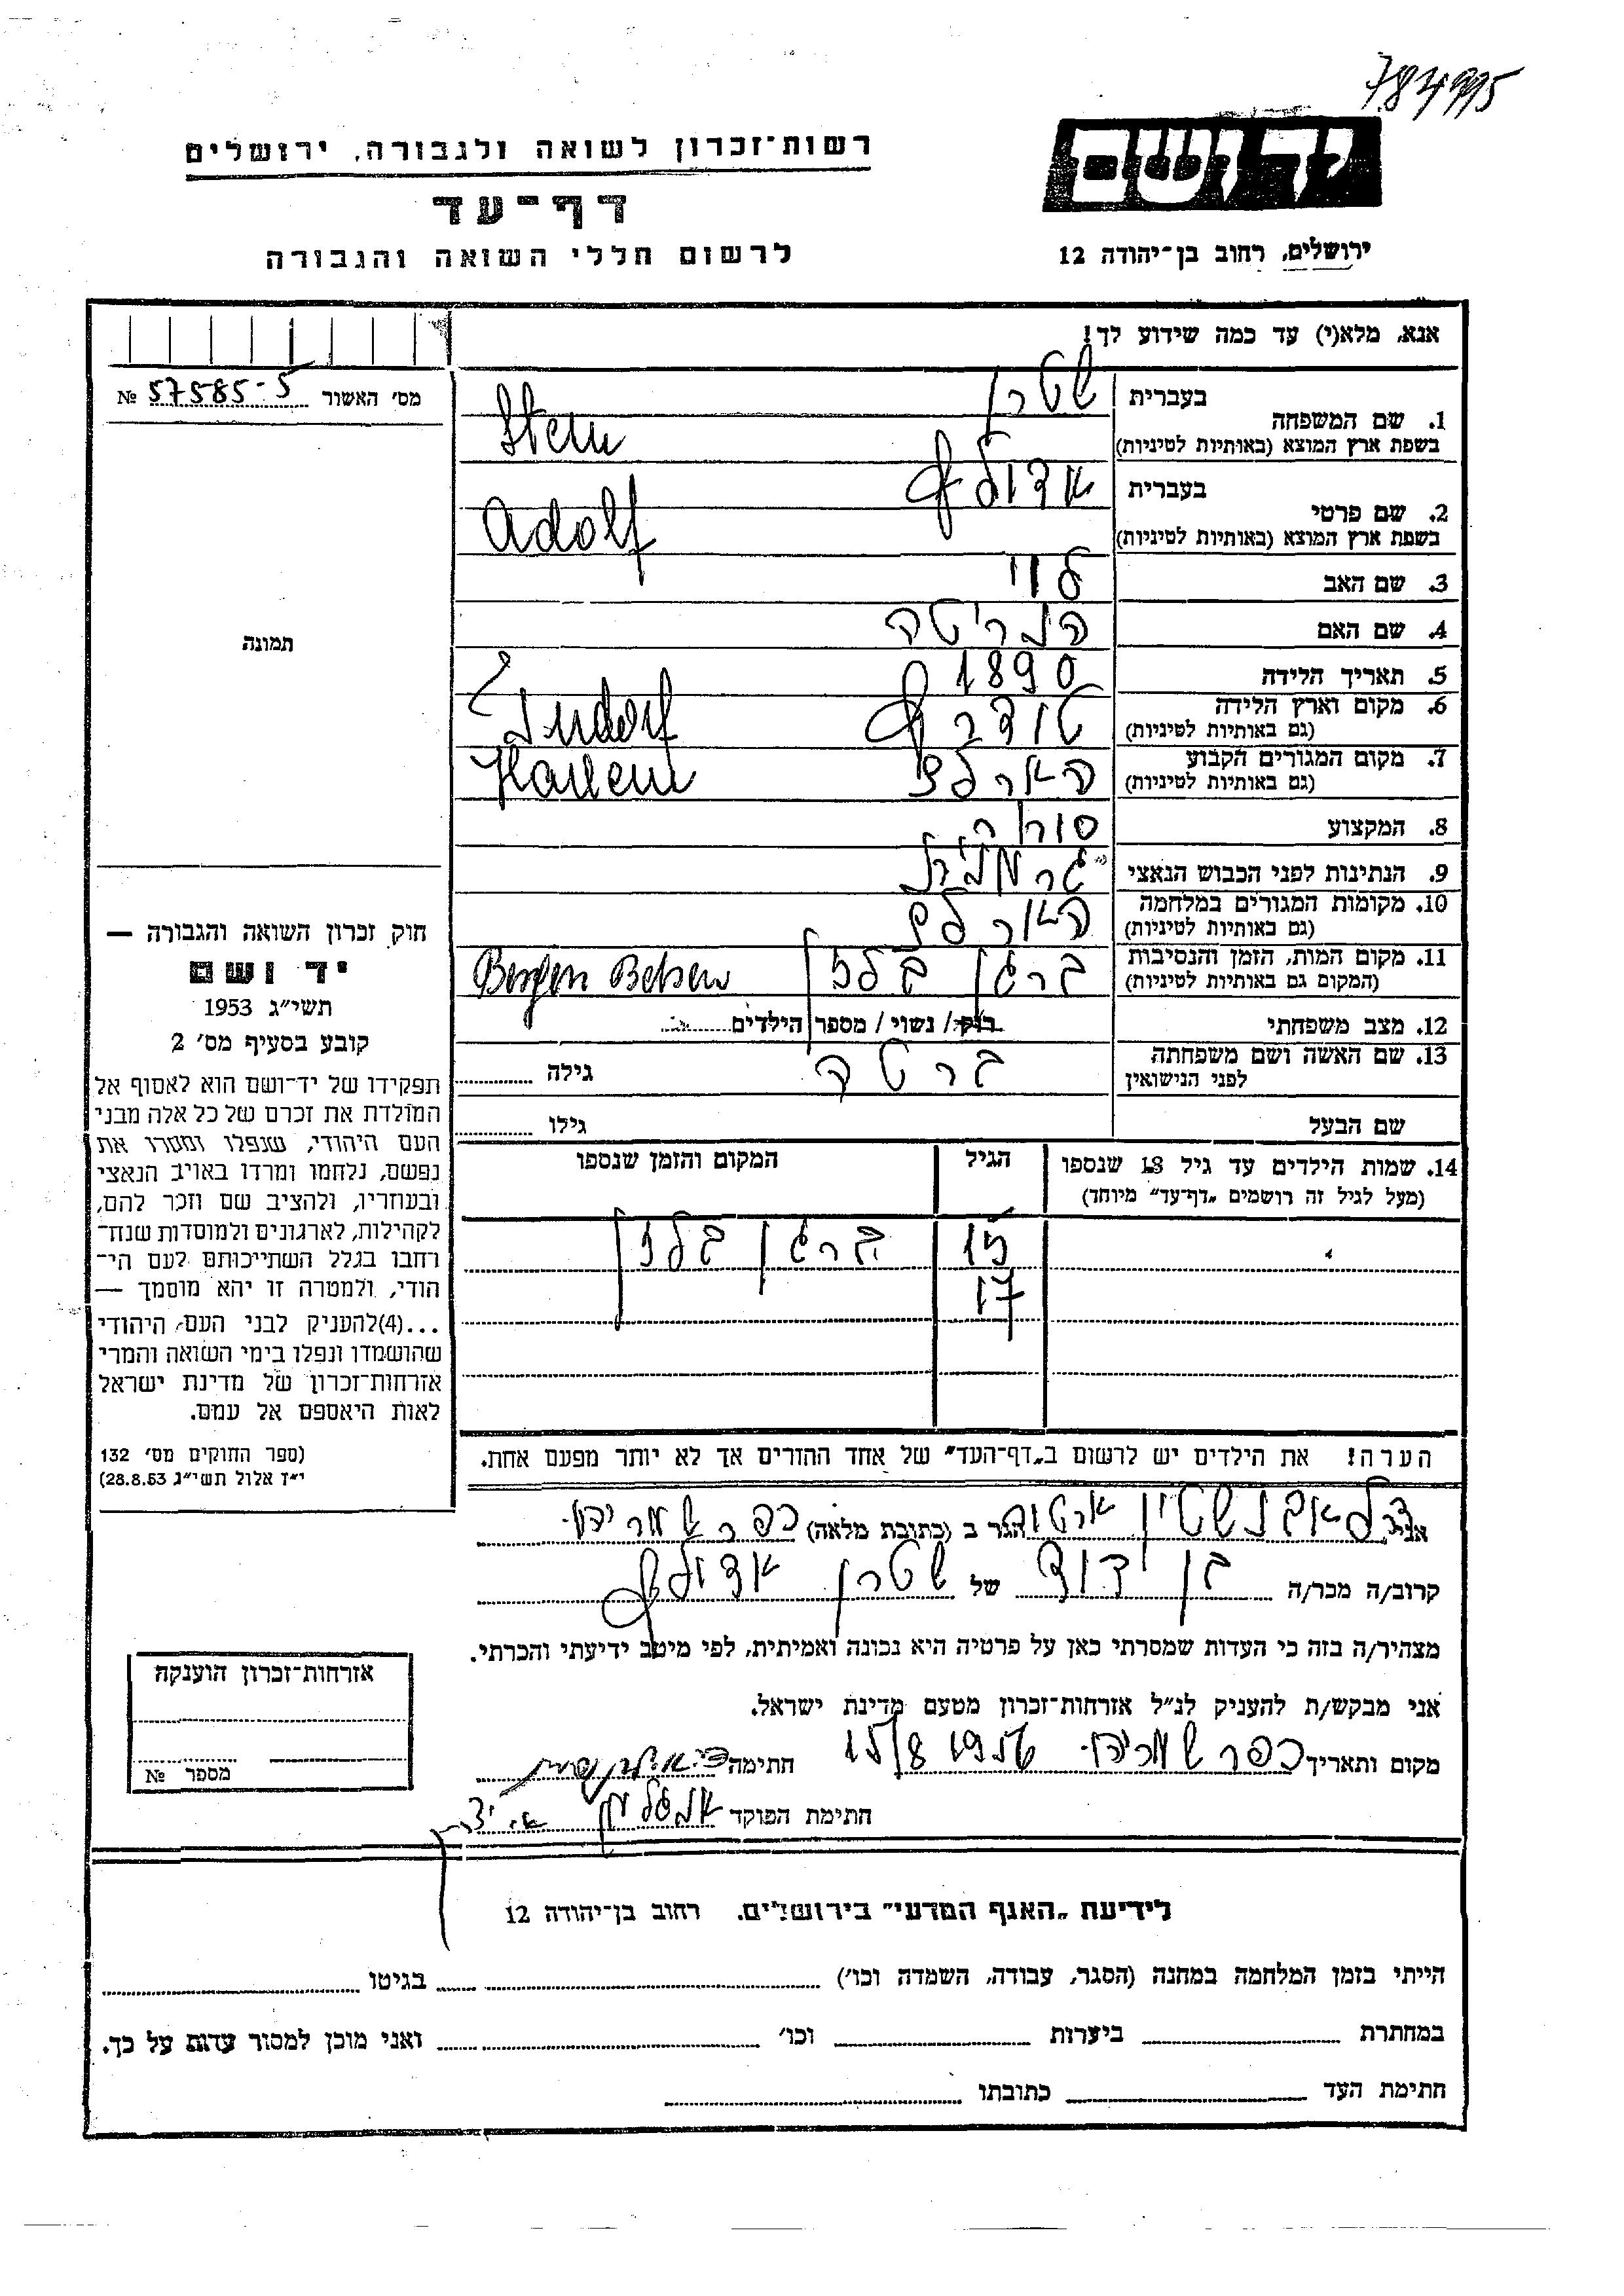 784995
רשות־זכרון לשואה ולגבורה, ירושלים
יד ושם
דף־עד
לרשום חללי השואה והגבורה
ירושלים, רחוב בן־יהודה 12
אנא, מלא(י) עד כמה שידוע לך!
מס׳ האשור 57585-5 №
1. שם המשפחה
בעברית שטרן
בשפת ארץ המוצא (באותיות לטיניות) Stern
2. שם פרטי
בעברית אדולף
בשפת ארץ המוצא (באותיות לטיניות) Adolf
3. שם האב לוי
4. שם האם
5. תאריך הלידה 1890
6. מקום וארץ הלידה
(גם באותיות לטיניות)
7. מקום המגורים הקבוע
(גם באותיות לטיניות)
8. המקצוע סוחר
9. הנתינות לפני הכבוש הנאצי גרמנית
10. מקומות המגורים במלחמה
(גם באותיות לטיניות)
11. מקום המות, הזמן והנסיבות ברגן בלזן Bergen Belsen
(המקום גם באותיות לטיניות)
12. מצב משפחתי רוק / נשוי / מספר הילדים
13. שם האשה ושם משפחתה ברטה גילה
לפני הנישואין
שם הבעל גילו
14. שמות הילדים עד גיל 18 שנספו הגיל המקום והזמן שנספו
(מעל לגיל זה רושמים „דף־עד” מיוחד)
15 ברגן בלזן
17
הערה! את הילדים יש לרשום ב„דף־העד” של אחד ההורים אך לא יותר מפעם אחת.
תמונה
חוק זכרון השואה והגבורה —
יד ושם
תשי״ג 1953
קובע בסעיף מס׳ 2
תפקידו של יד־ושם הוא לאסוף אל
המולדת את זכרם של כל אלה מבני
העם היהודי, שנפלו ומסרו את
נפשם, נלחמו ומרדו באויב הנאצי
ובעוזריו, ולהציב שם וזכר להם,
לקהילות, לארגונים ולמוסדות שנח־
רחבו בגלל השתייכותם לעם הי־
הודי, ולמטרה זו יהא מוסמך —
...(4)להעניק לבני העם היהודי
שהושמדו ונפלו בימי השואה והמרי
אזרחות־זכרון של מדינת ישראל
לאות היאספם אל עמם.
(ספר החוקים מס׳ 132
י״ז אלול תשי״ג 28.8.53)
אני ארטור הגר ב (כתובת מלאה) כפר שמריהו
קרוב/ה מכר/ה בן דוד של שטרן אדולף
מצהיר/ה בזה כי העדות שמסרתי כאן על פרטיה היא נכונה ואמיתית, לפי מיטב ידיעתי והכרתי.
אני מבקש/ת להעניק לנ״ל אזרחות־זכרון מטעם מדינת ישראל.
מקום ותאריך כפר שמריהו 15/8 1956 חתימה
חתימת הפוקד
אזרחות־זכרון הוענקה
מספר №
לידיעת „האגף המדעי” בירושלים. רחוב בן־יהודה 12
הייתי בזמן המלחמה במחנה (הסגר, עבודה, השמדה וכו׳) בגיטו
במחתרת ביערות וכו׳ ואני מוכן למסור עדות על כך.
חתימת העד כתובתו